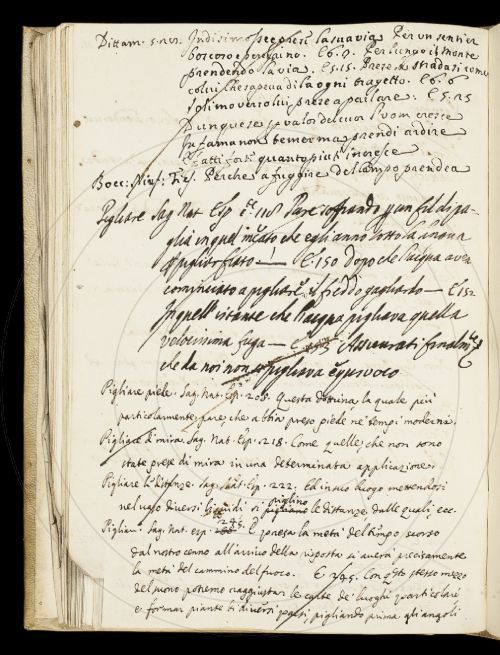 Dittam. 5. Indi si mosse e presi la sua via Per un sentier
boscoso e peregrino. E 6.9. Per lungo il monte
prendendo la via. E 5.15. Prese la strada si come
colui che sapeua di la ogni tragetto. E 6.6
Solimo verso lui prese a parlare. E 5.25
Dunque se valor del cuor l'vom cresce
In fama non temer ma prendi ardire
quanto piu t'incresce
Bocc. Ninf. Fies. Perche a fuggire del campo prendea
Pigliare Sag. Nat. Esp. 118 Pare soffiando p un fil di pa-
glia in quel mentre che egli anno sotto la acqua
pigliar fiato — E 150 Dopo che l'acqua avea
cominciato a pigliare il freddo gagliardo — E 152
In quell'istante che l'acqua pigliava quella
velocissima fuga — E Assicurati finalmte
che da noi non si pigliava equivoco
Pigliare piede. Sag. Nat. Esp. 208. Questa dottrina, la quale più
particolarmente pare, che abbia preso piede ne' tempi moderni.
Pigliare di mira. Sag. Nat. Esp. 218. Come quelle, che non sono
state prese di mira in una determinata applicazione.
Pigliare le distanze. Sag. Nat. Esp. 222. Ed in suo luogo mettendosi
nel vaso diversi liquidi si piglino le distanze dalle quali, ecc.
Pigliare. Sag. Nat. esp. 245. E presa la metà del tempo scorso
dal nostro cenno all'arrivo della risposta si averà precisamente
la metà del cammino del fuoco. E 245. Con qsto stesso mezzo
del suono potremo raggiustar le carte de' luoghi particolari
e formar piante di diversi paesi pigliando prima gli angoli